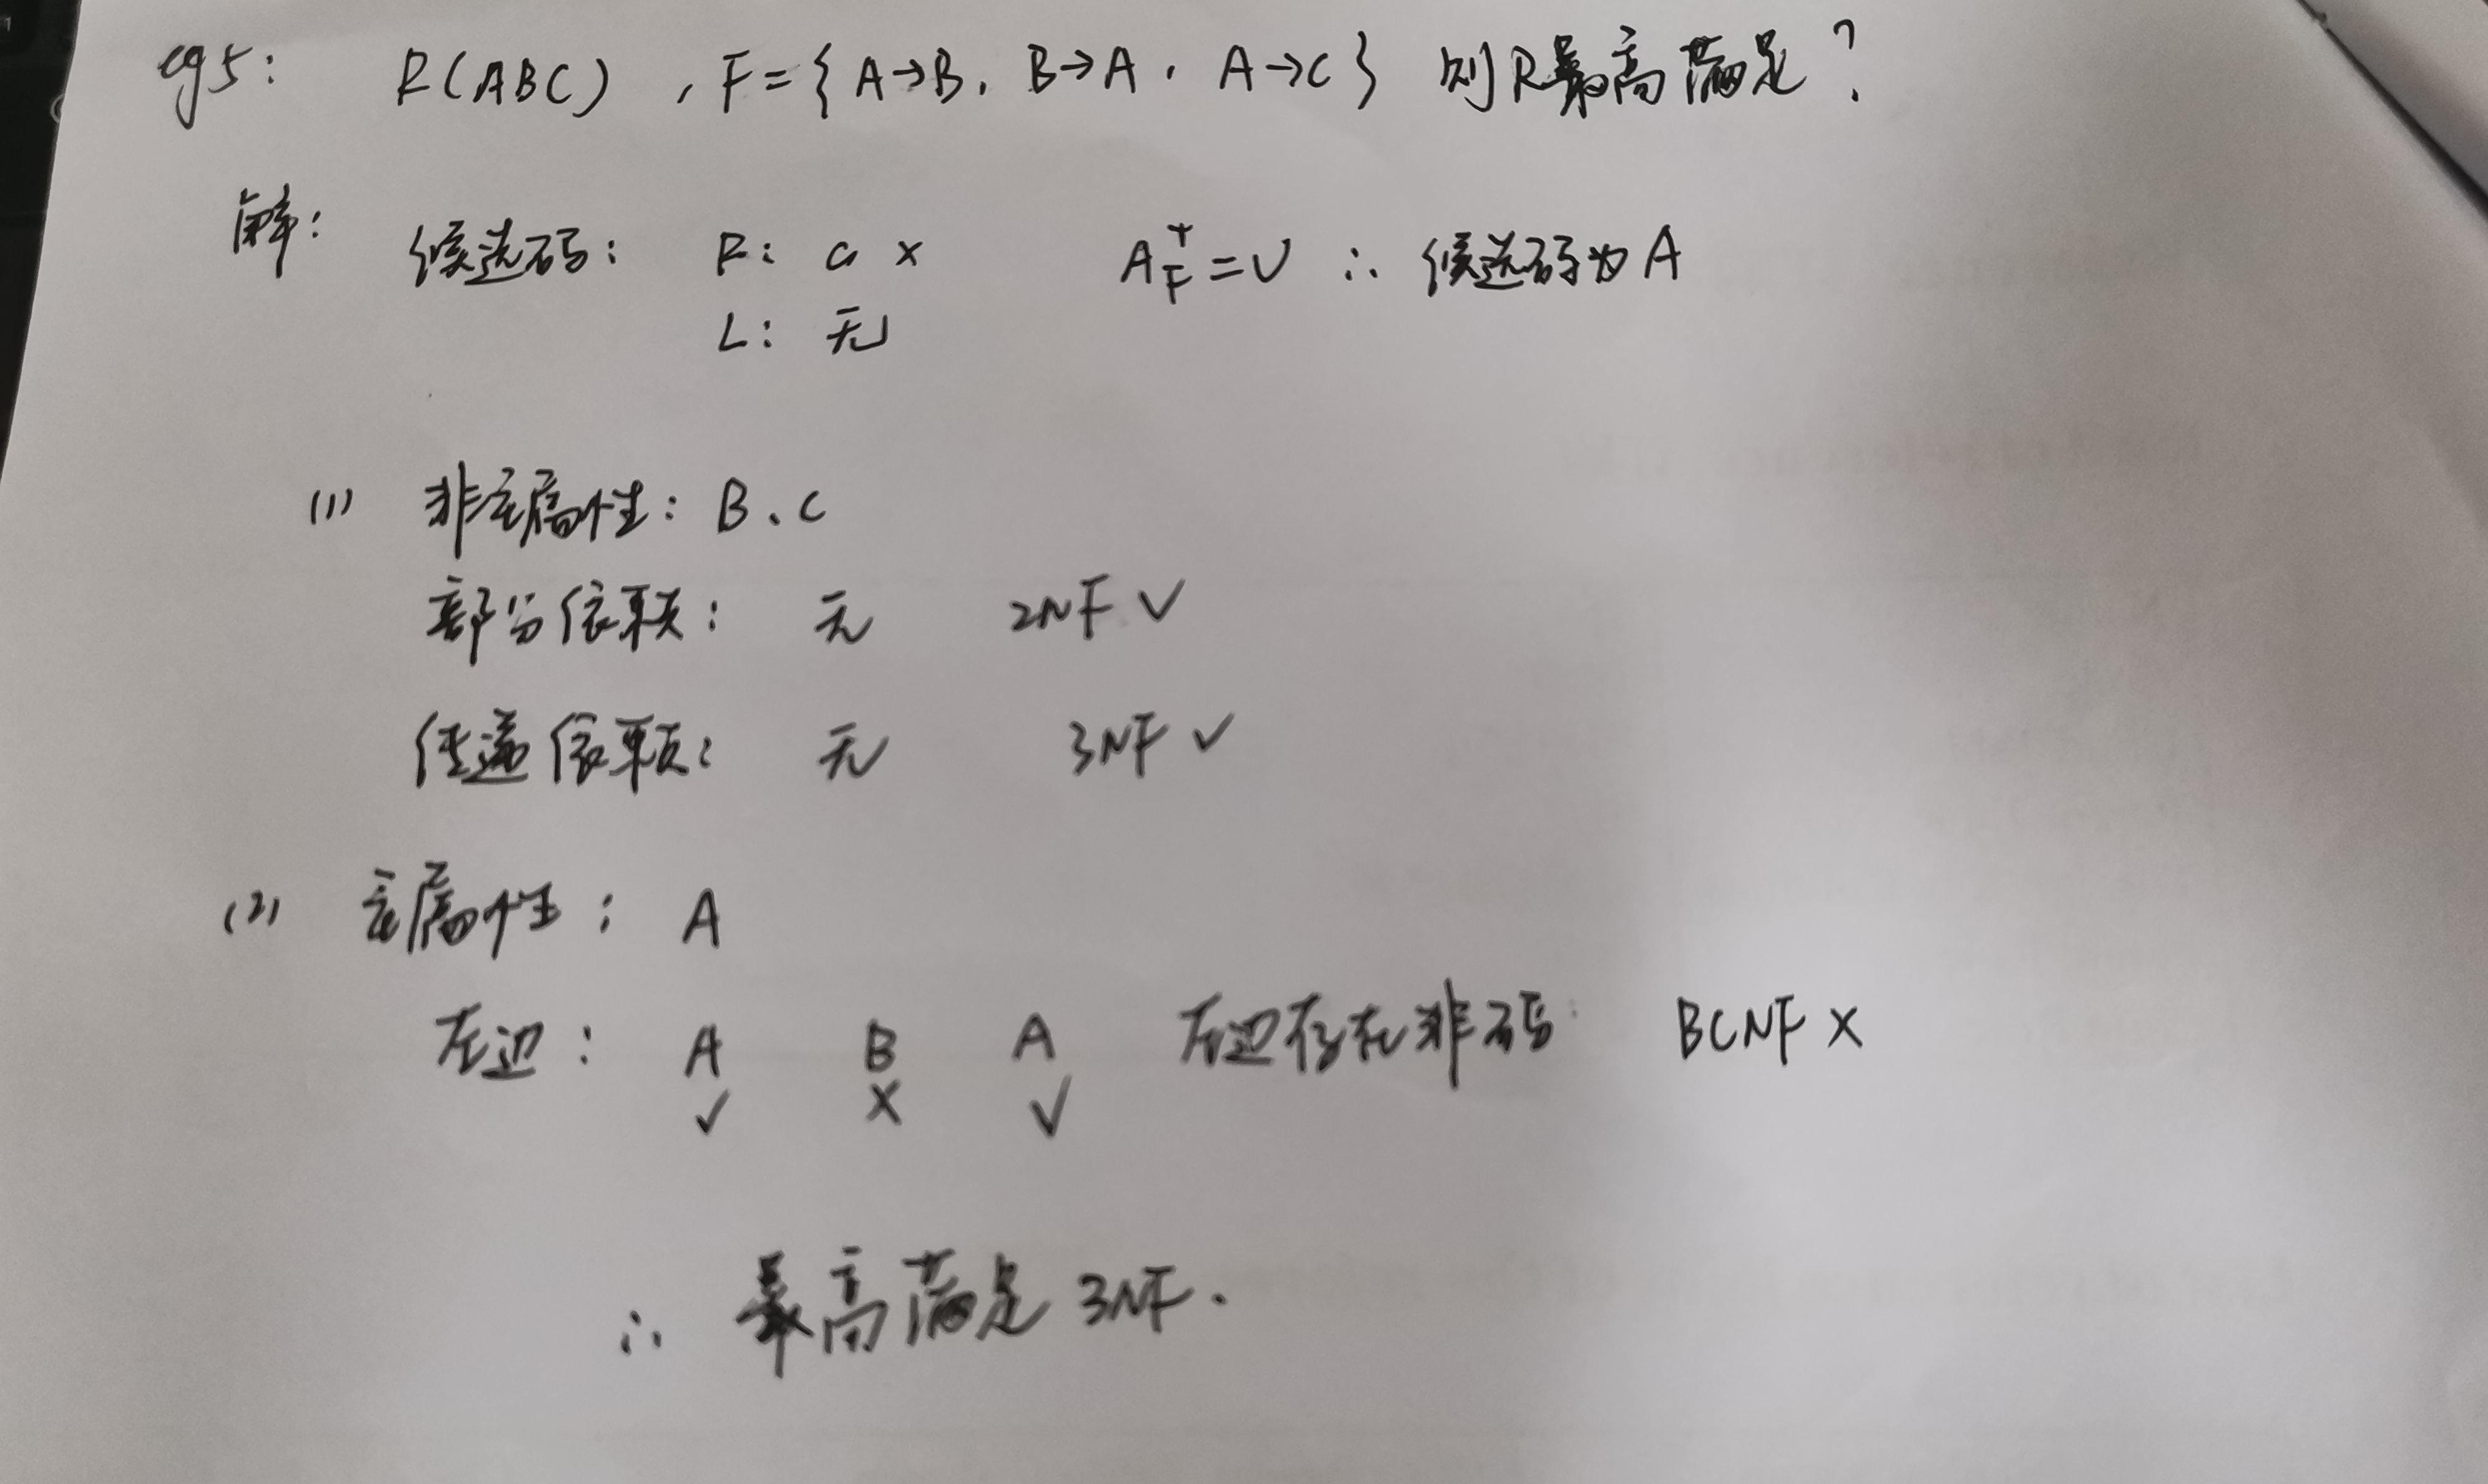 eg5: R(ABC), F={A→B, B→A, A→C} 则R最高满足?
解: 候选码: R: C × A_F^+=U ∴ 候选码为A
L: 无
(1) 非主属性: B、C
部分依赖: 无 2NF ✓
传递依赖: 无 3NF ✓
(2) 主属性: A
左边: A B A 左边存在非码 BCNF ×
✓ × ✓
∴ 最高满足 3NF.